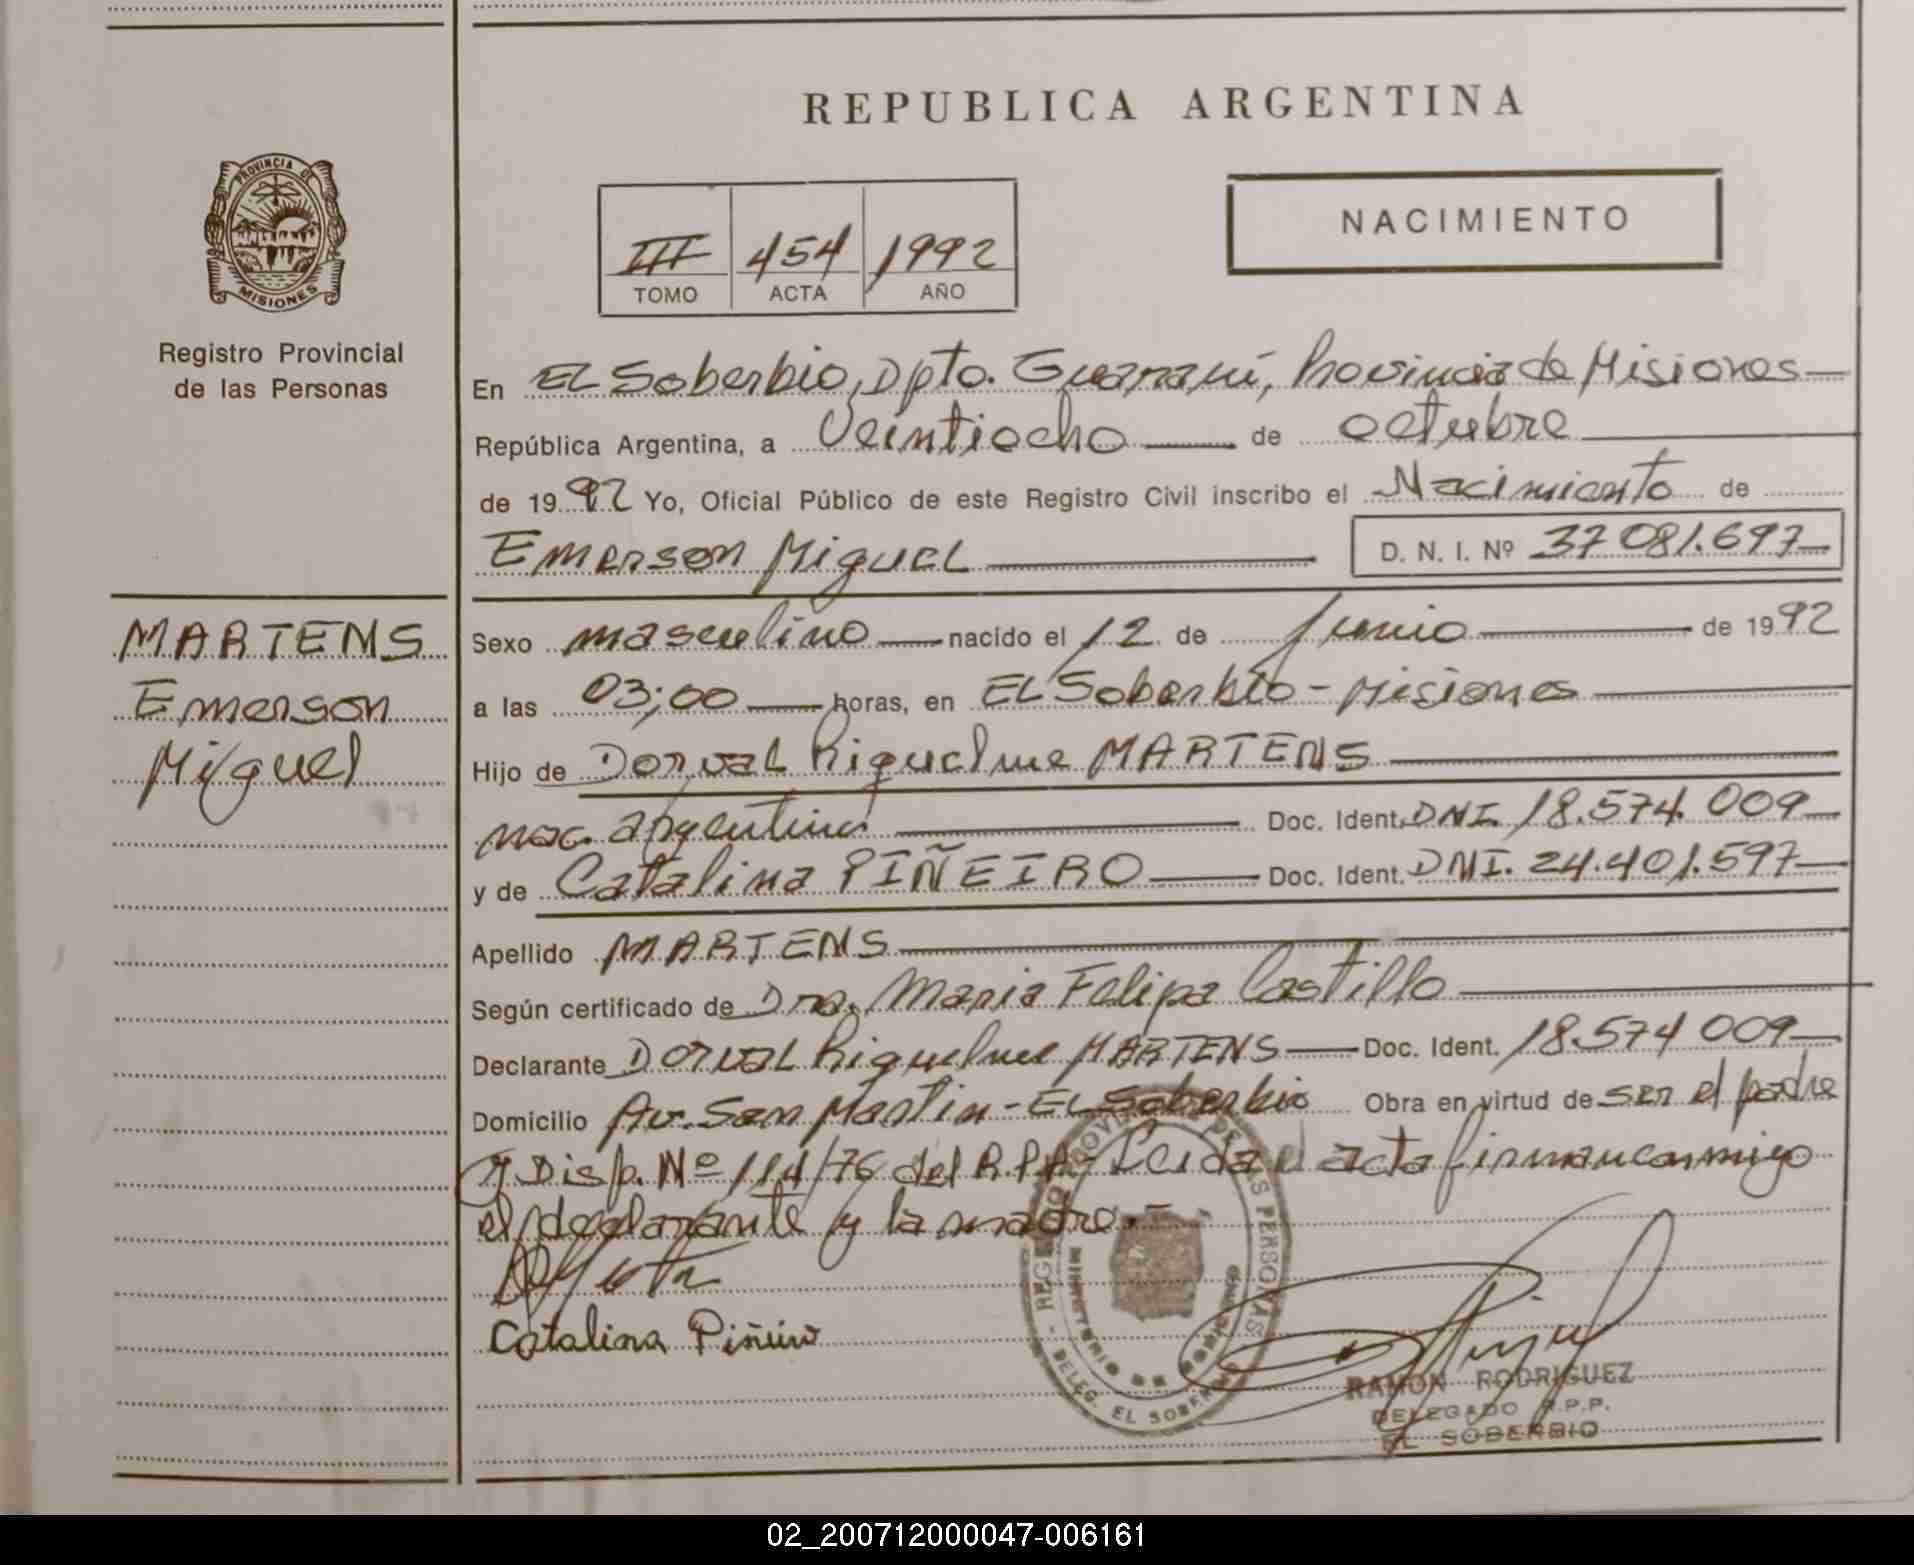 REPUBLICA ARGENTINA
PROVINCIA DE
MISIONES
Registro Provincial
de las Personas
NACIMIENTO
III 454 1992
TOMO ACTA AÑO
En EL Soberbio, Dpto. Guaraní, Provincia de Misiones
República Argentina, a Veintiocho de octubre
de 1992 Yo, Oficial Público de este Registro Civil inscribo el Nacimiento de
Emerson Miguel D. N. I. Nº 37 081.697
MARTENS
Emerson
Miguel
Sexo masculino nacido el 12 de Junio de 1992
a las 03;00 horas, en EL Soberbio - Misiones
Hijo de Dorval Riquelme MARTENS
nac. argentina Doc. Ident. DNI. 18.574.009
y de Catalina PIÑEIRO Doc. Ident. DNI. 24.401.597
Apellido MARTENS
Según certificado de Dra. Maria Felipa Castillo
Declarante Dorval Riquelme MARTENS Doc. Ident. 18.574 009
Domicilio Av. San Martin - EL Soberbio Obra en virtud de ser el padre
y Disp. Nº 114/76 del R.P.P. Leida el acta firman conmigo
el declarante y la madre.-
Catalina Piñeiro
REGISTRO PROVINCIAL DE LAS PERSONAS
MINISTERIO DE GOBIERNO
- DELEG. EL SOBERBIO
RAMON RODRIGUEZ
DELEGADO R.P.P.
EL SOBERBIO
02_200712000047-006161